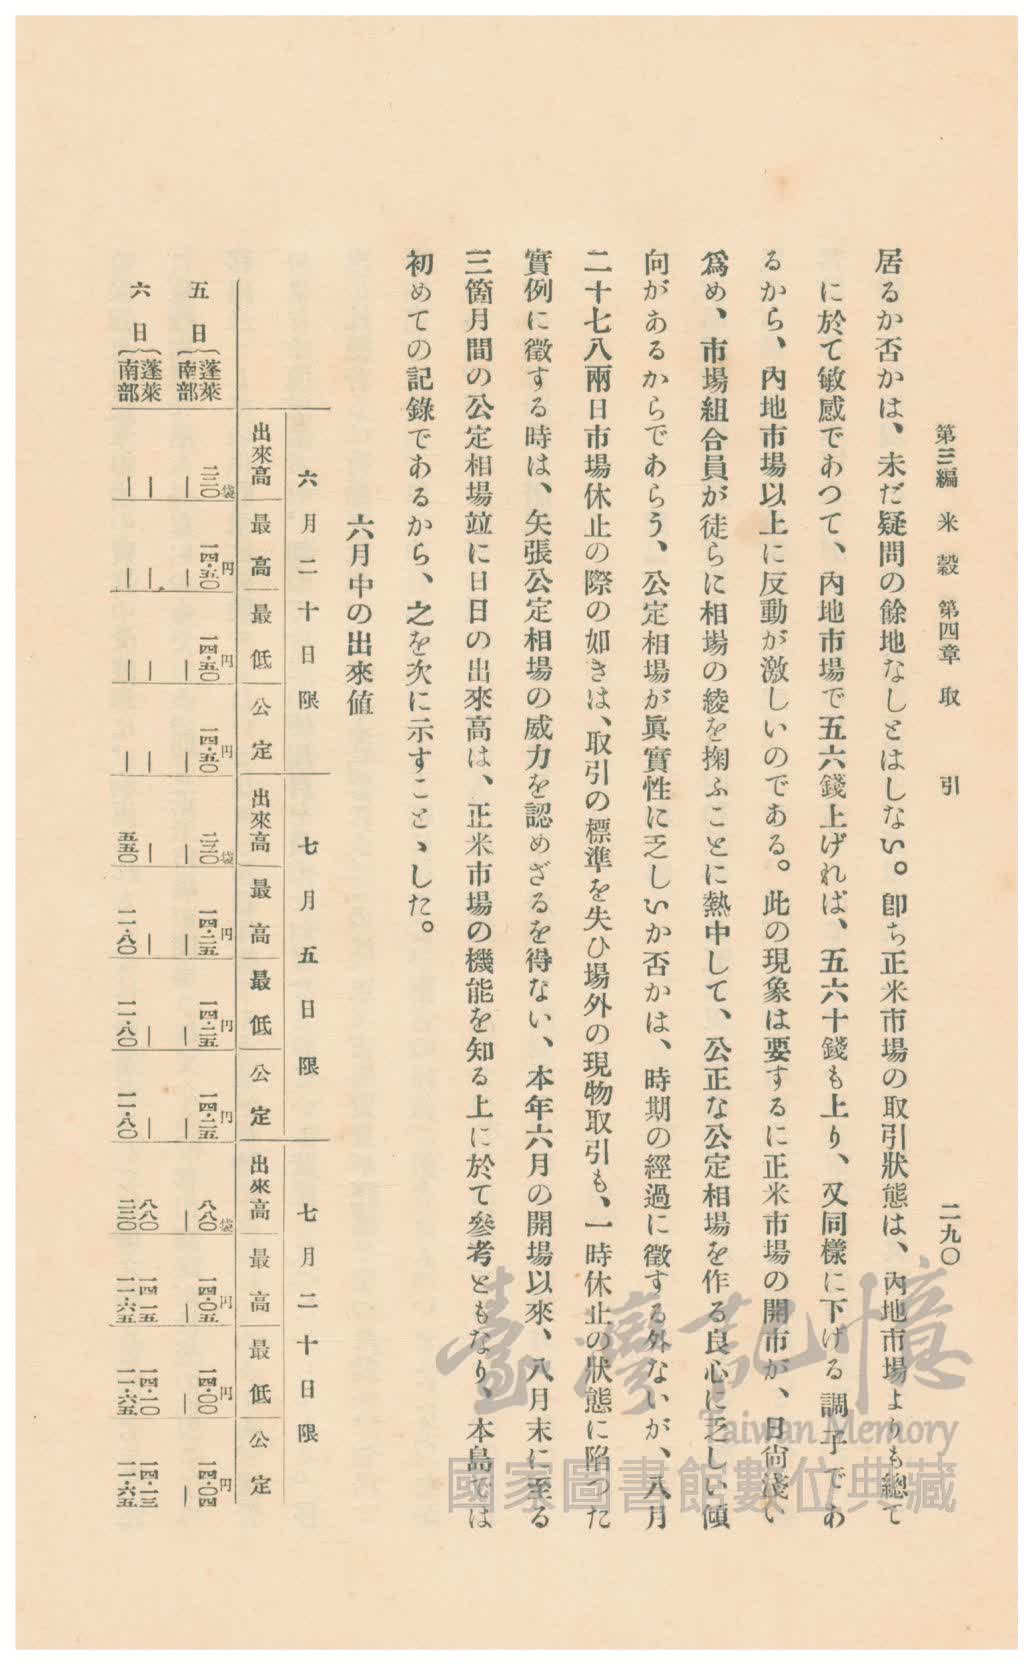 第三編　米穀　第四章　取引　二九〇
居るか否かは、未だ疑問の餘地なしとはしない。卽ち正米市場の取引狀態は、內地市場よりも總て
に於て敏感であつて、內地市場で五六錢上げれば、五六十錢も上り、又同樣に下げる調子であ
るから、內地市場以上に反動が激しいのである。此の現象は要するに正米市場の開市が、日尙淺い
爲め、市場組合員が徒らに相場の綾を掬ふことに熱中して、公正な公定相場を作る良心に乏しい傾
向があるからであらう、公定相場が眞實性に乏しいか否かは、時期の經過に徵する外ないが、八月
二十七八兩日市場休止の際の如きは、取引の標準を失ひ場外の現物取引も、一時休止の狀態に陷つた
實例に徵する時は、矢張公定相場の威力を認めざるを得ない、本年六月の開場以來、八月末に至る
三箇月間の公定相場竝に日日の出來高は、正米市場の機能を知る上に於て參考ともなり、本島では
初めての記錄であるから、之を次に示すことゝした。
六月中の出來値
六月二十日限　七月五日限　七月二十日限
出來高　最高　最低　公定　出來高　最高　最低　公定　出來高　最高　最低　公定
五日｛蓬萊　二二〇袋　一四・五〇円　一四・五〇円　一四・五〇円　二二〇袋　一四・二五円　一四・二五円　一四・二五円　八八〇袋　一四・〇五円　一四・〇〇円　一四・〇四円
南部　｜　｜　｜　｜　｜　｜　｜　｜　｜　｜　｜　｜
六日｛蓬萊　｜　｜　｜　｜　｜　｜　｜　｜　八八〇　一四・一五　一四・一〇　一四・一三
南部　｜　｜　｜　｜　五五〇　一一・八〇　一一・八〇　一一・八〇　二二〇　一一・六五　一一・六五　一一・六五
臺灣記憶
Taiwan Memory
國家圖書館數位典藏